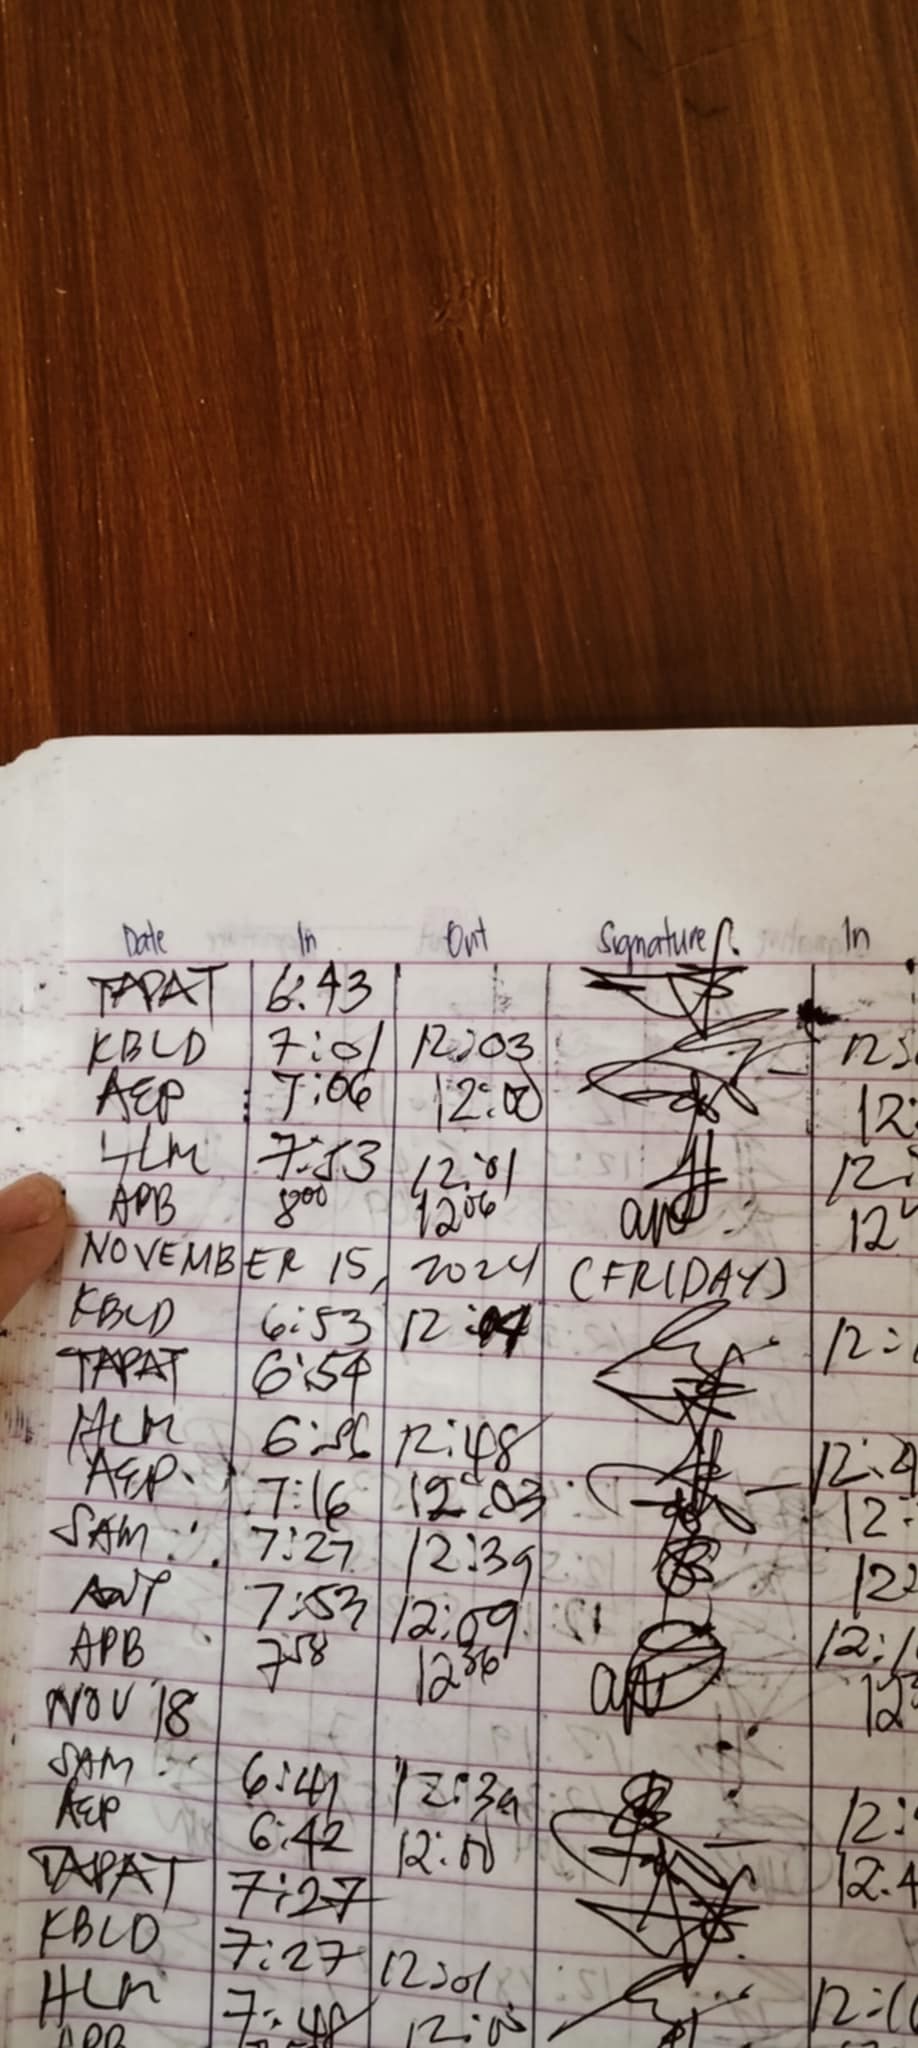 Date In Out Signature In
TAPAT 6:43
KBLD 7:01 12:03
AEP 7:06 12:00 12:
HLM 7:53 12:01 12:
APB 800 1206 ap 12
NOVEMBER 15, 2024 (FRIDAY)
KBLD 6:53 12:04 12:
TAPAT 6:54
HLM 6:56 12:48 12:4
AEP 7:16 12:03 12:
SAM 7:27 12:39 12
7:53 12:09 12:1
APB 758 1236 ap 12
NOV 18
SAM 6:41 12:39 12:
AEP 6:42 12:00 12:4
TAPAT 7:27
KBLD 7:27 12:01 12:1
HLM 7:48
APB